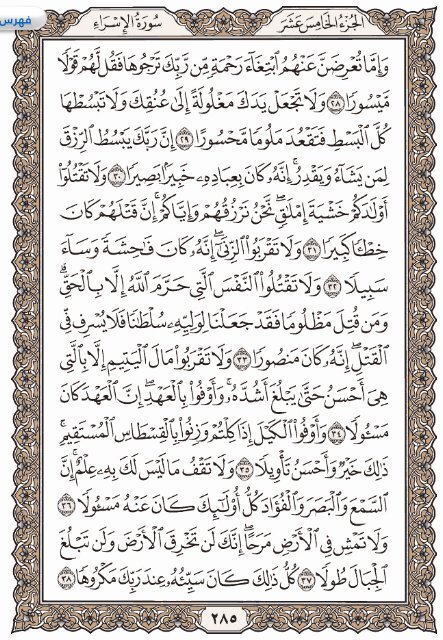 فهرس
سُورَةُ الإِسْرَاءِ
الجُزْءُ الخَامِسَ عَشَرَ
وَإِمَّا تُعْرِضَنَّ عَنْهُمُ ٱبْتِغَآءَ رَحْمَةٍ مِّن رَّبِّكَ تَرْجُوهَا فَقُل لَّهُمْ قَوْلًا
مَّيْسُورًا ٢٨ وَلَا تَجْعَلْ يَدَكَ مَغْلُولَةً إِلَىٰ عُنُقِكَ وَلَا تَبْسُطْهَا
كُلَّ ٱلْبَسْطِ فَتَقْعُدَ مَلُومًا مَّحْسُورًا ٢٩ إِنَّ رَبَّكَ يَبْسُطُ ٱلرِّزْقَ
لِمَن يَشَآءُ وَيَقْدِرُ ۚ إِنَّهُۥ كَانَ بِعِبَادِهِۦ خَبِيرًۢا بَصِيرًا ٣٠ وَلَا تَقْتُلُوٓا۟
أَوْلَـٰدَكُمْ خَشْيَةَ إِمْلَـٰقٍ ۖ نَّحْنُ نَرْزُقُهُمْ وَإِيَّاكُمْ ۚ إِنَّ قَتْلَهُمْ كَانَ
خِطْـًٔا كَبِيرًا ٣١ وَلَا تَقْرَبُوا۟ ٱلزِّنَىٰٓ ۖ إِنَّهُۥ كَانَ فَـٰحِشَةً وَسَآءَ
سَبِيلًا ٣٢ وَلَا تَقْتُلُوا۟ ٱلنَّفْسَ ٱلَّتِى حَرَّمَ ٱللَّهُ إِلَّا بِٱلْحَقِّ ۗ
وَمَن قُتِلَ مَظْلُومًا فَقَدْ جَعَلْنَا لِوَلِيِّهِۦ سُلْطَـٰنًا فَلَا يُسْرِف فِّى
ٱلْقَتْلِ ۖ إِنَّهُۥ كَانَ مَنصُورًا ٣٣ وَلَا تَقْرَبُوا۟ مَالَ ٱلْيَتِيمِ إِلَّا بِٱلَّتِى
هِىَ أَحْسَنُ حَتَّىٰ يَبْلُغَ أَشُدَّهُۥ ۚ وَأَوْفُوا۟ بِٱلْعَهْدِ ۖ إِنَّ ٱلْعَهْدَ كَانَ
مَسْـُٔولًا ٣٤ وَأَوْفُوا۟ ٱلْكَيْلَ إِذَا كِلْتُمْ وَزِنُوا۟ بِٱلْقِسْطَاسِ ٱلْمُسْتَقِيمِ ۚ
ذَٰلِكَ خَيْرٌ وَأَحْسَنُ تَأْوِيلًا ٣٥ وَلَا تَقْفُ مَا لَيْسَ لَكَ بِهِۦ عِلْمٌ ۚ إِنَّ
ٱلسَّمْعَ وَٱلْبَصَرَ وَٱلْفُؤَادَ كُلُّ أُو۟لَـٰٓئِكَ كَانَ عَنْهُ مَسْـُٔولًا ٣٦
وَلَا تَمْشِ فِى ٱلْأَرْضِ مَرَحًا ۖ إِنَّكَ لَن تَخْرِقَ ٱلْأَرْضَ وَلَن تَبْلُغَ
ٱلْجِبَالَ طُولًا ٣٧ كُلُّ ذَٰلِكَ كَانَ سَيِّئُهُۥ عِندَ رَبِّكَ مَكْرُوهًا ٣٨
٢٨٥